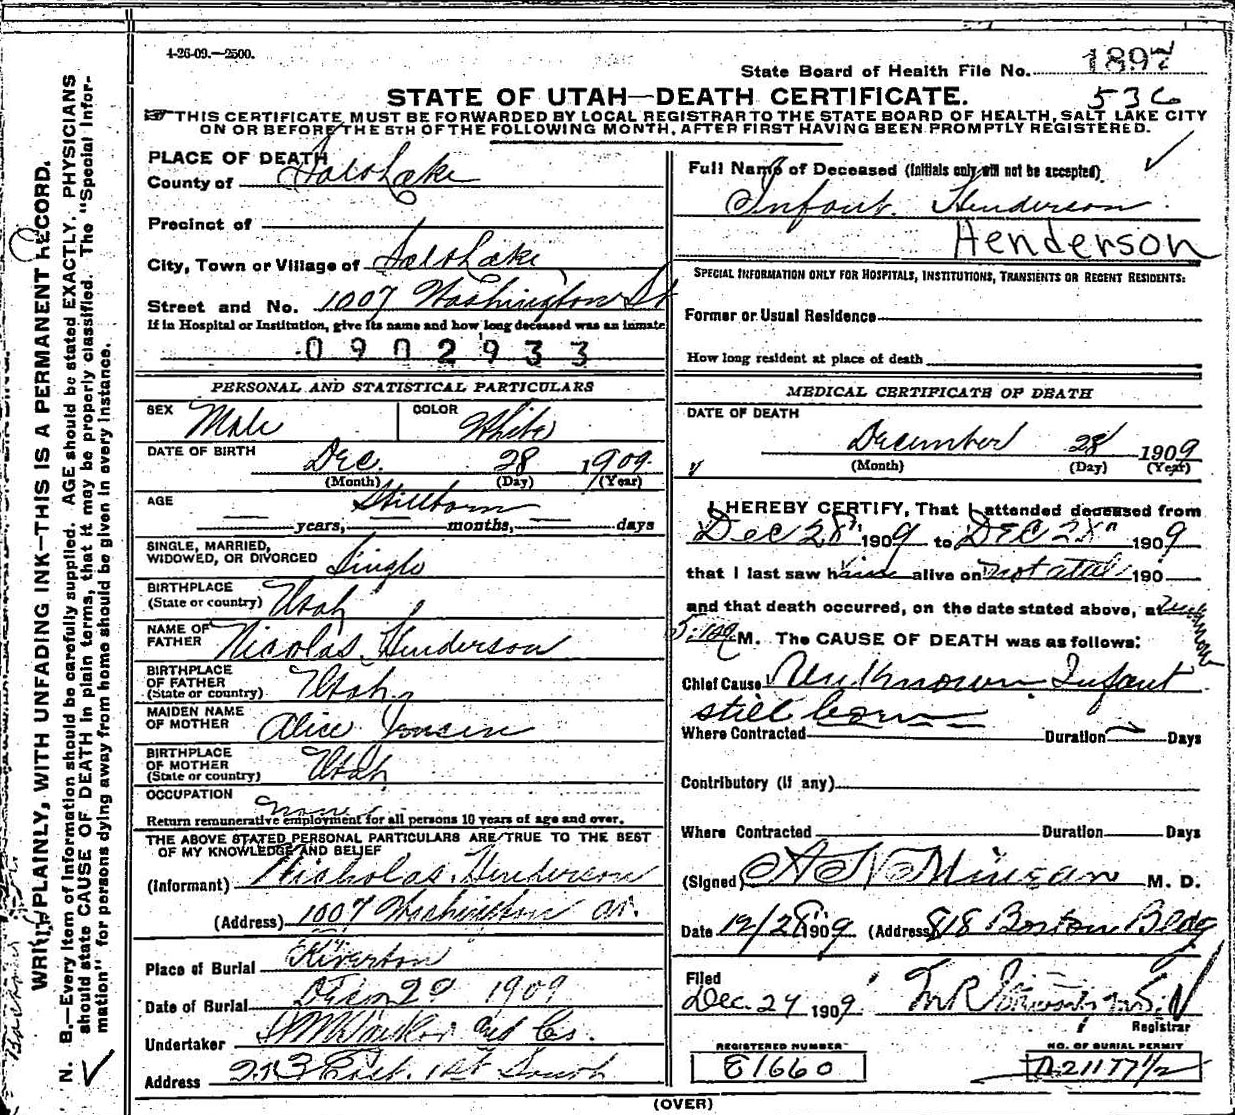 4-26-09.—2500.
State Board of Health File No. 1897
STATE OF UTAH—DEATH CERTIFICATE.
536
THIS CERTIFICATE MUST BE FORWARDED BY LOCAL REGISTRAR TO THE STATE BOARD OF HEALTH, SALT LAKE CITY
ON OR BEFORE THE 5TH OF THE FOLLOWING MONTH, AFTER FIRST HAVING BEEN PROMPTLY REGISTERED.
WRITE PLAINLY, WITH UNFADING INK—THIS IS A PERMANENT RECORD.
N. B.—Every item of information should be carefully supplied. AGE should be stated EXACTLY. PHYSICIANS
should state CAUSE OF DEATH in plain terms, that it may be properly classified. The "Special Infor-
mation" for persons dying away from home should be given in every instance.
PLACE OF DEATH
County of Salt Lake
Precinct of
City, Town or Village of Salt Lake
Street and No. 1007 Washington St
If in Hospital or Institution, give its name and how long deceased was an inmate
0902933
PERSONAL AND STATISTICAL PARTICULARS
SEX Male COLOR White
DATE OF BIRTH Dec. 28 1909
(Month) (Day) (Year)
AGE Stillborn
years, months, days
SINGLE, MARRIED,
WIDOWED, OR DIVORCED Single
BIRTHPLACE
(State or country) Utah
NAME OF
FATHER Nicolas Henderson
BIRTHPLACE
OF FATHER
(State or country) Utah
MAIDEN NAME
OF MOTHER Alice Jensen
BIRTHPLACE
OF MOTHER
(State or country) Utah
OCCUPATION None
Return remunerative employment for all persons 10 years of age and over.
THE ABOVE STATED PERSONAL PARTICULARS ARE TRUE TO THE BEST
OF MY KNOWLEDGE AND BELIEF
(Informant) Nicholas Henderson
(Address) 1007 Washington
Place of Burial Riverton
Date of Burial 1909
Undertaker and Co.
Address East 1st South
Full Name of Deceased (Initials only will not be accepted)
Infant Henderson
Henderson
SPECIAL INFORMATION ONLY FOR HOSPITALS, INSTITUTIONS, TRANSIENTS OR RECENT RESIDENTS:
Former or Usual Residence
How long resident at place of death
MEDICAL CERTIFICATE OF DEATH
DATE OF DEATH
December 28 1909
(Month) (Day) (Year)
I HEREBY CERTIFY, That I attended deceased from
Dec 28th 1909 to Dec 28th 1909
that I last saw him alive on not atal 190
and that death occurred, on the date stated above, at
M. The CAUSE OF DEATH was as follows:
Chief Cause Unknown Infant
still born
Where Contracted Duration Days
Contributory (if any)
Where Contracted Duration Days
(Signed) M. D.
Date 12/28 1909 (Address) 818 Boston Bldg
Filed
Dec. 29 1909
Registrar
REGISTERED NUMBER
E1660
NO. OF BURIAL PERMIT
(OVER)